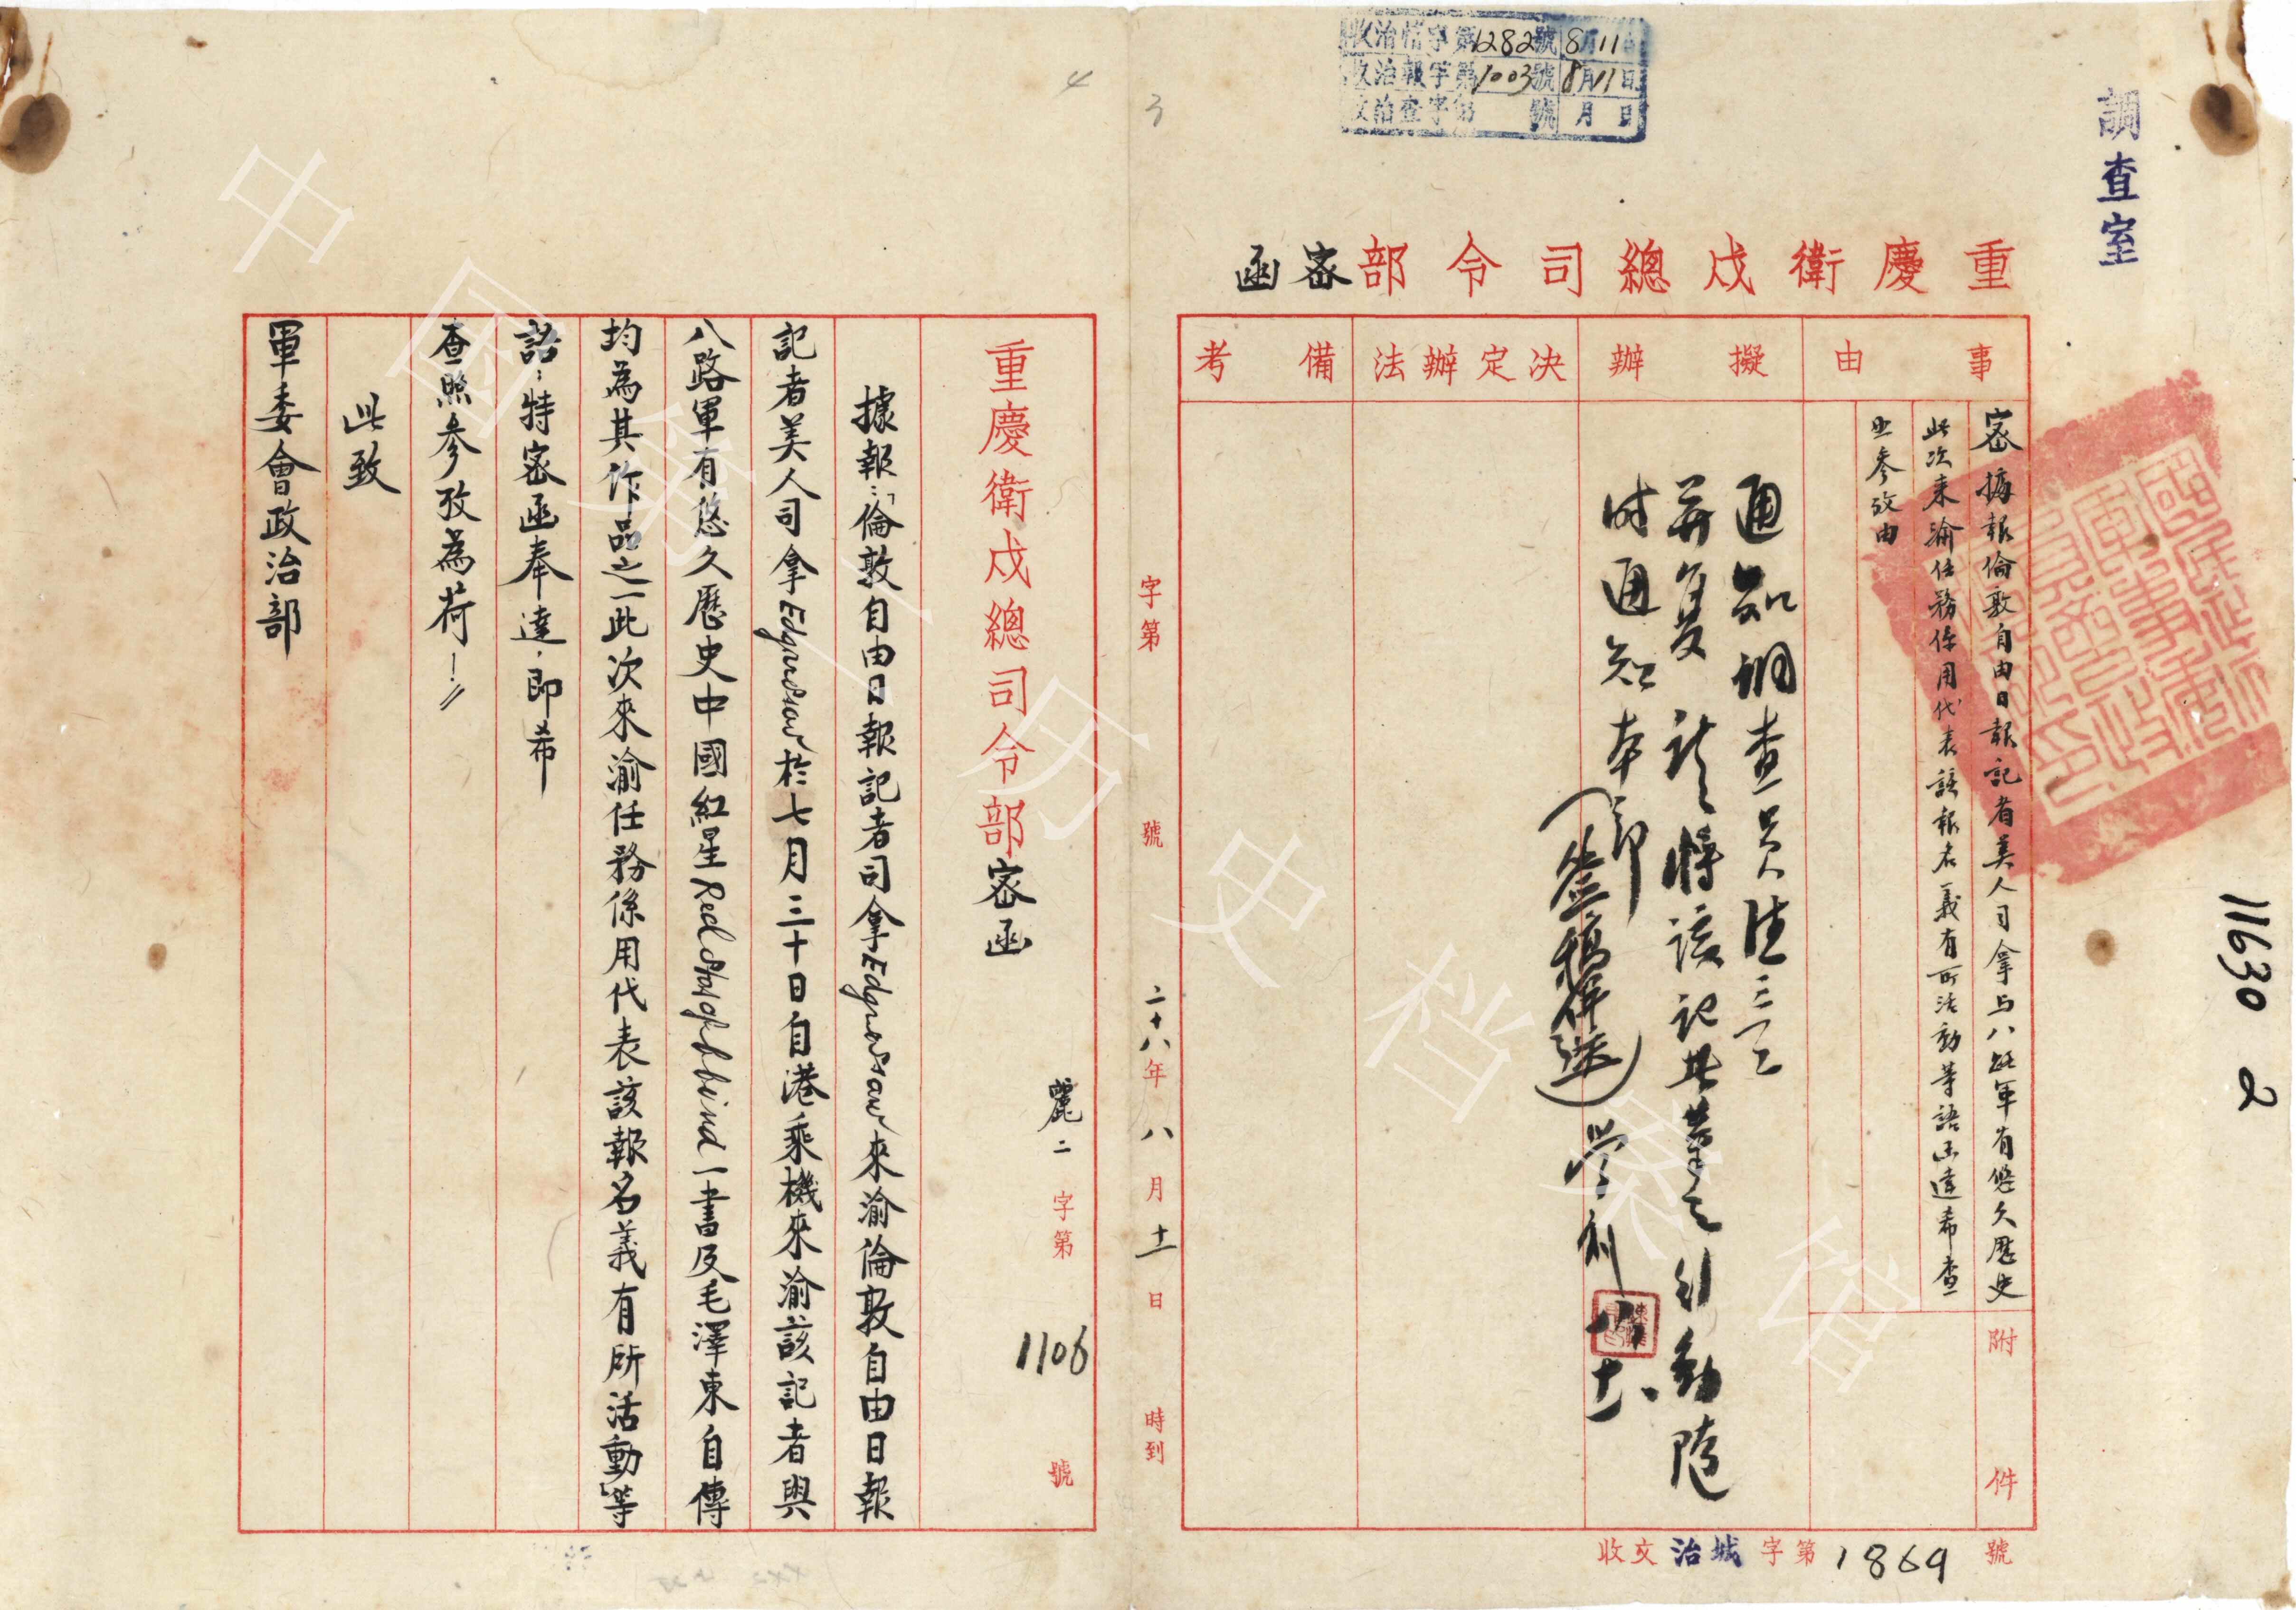 調查室
收治情字第1282號8月11日
收治報字第1003號8月11日
收治查字第 號 月 日
11630 2
重慶衛戍總司令部密函
事由
密 據報倫敦自由日報記者美人司拿与八路軍有悠久歷史
此次来渝任務係用代表該報名義有所活動等語函達希查
照參攷由
附件
擬辦
通知調查員注意
并复 請將該記者之行動隨
时通知本部
學
決定辦法
備考
收文治城字第1869號
3
4
字第 號 二十八年八月十一日 時到
重慶衛戍總司令部密函
麗二字第1106號
據報：「倫敦自由日報記者司拿Edgar Snow來渝倫敦自由日報
記者美人司拿Edgar Snow於七月三十日自港乘機來渝該記者與
八路軍有悠久歷史中國紅星Red Star of hbind一書及毛澤東自傳
均為其作品之一此次來渝任務係用代表該報名義有所活動」等
語：特密函奉達，即希
查照參攷為荷！
此致
軍委會政治部
中国第二历史档案馆